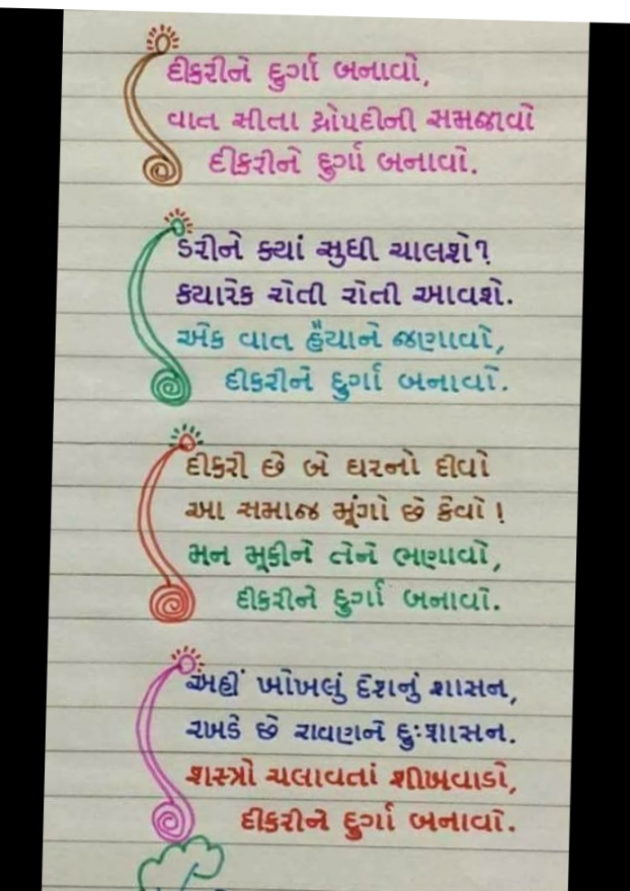 દીકરીને દુર્ગા બનાવો,
વાત સીતા દ્રોપદીની સમજાવો
દીકરીને દુર્ગા બનાવો.
ડરીને ક્યાં સુધી ચાલશે?
ક્યારેક રોતી રોતી આવશે.
એક વાત હૈયાને જણાવો,
દીકરીને દુર્ગા બનાવો.
દીકરી છે બે ઘરનો દીવો
આ સમાજ મૂંગો છે કેવો!
મન મૂકીને તેને ભણાવો,
દીકરીને દુર્ગા બનાવો.
અહીં ખોખલું દેશનું શાસન,
રખડે છે રાવણને દુઃશાસન.
શસ્ત્રો ચલાવતાં શીખવાડો,
દીકરીને દુર્ગા બનાવો.